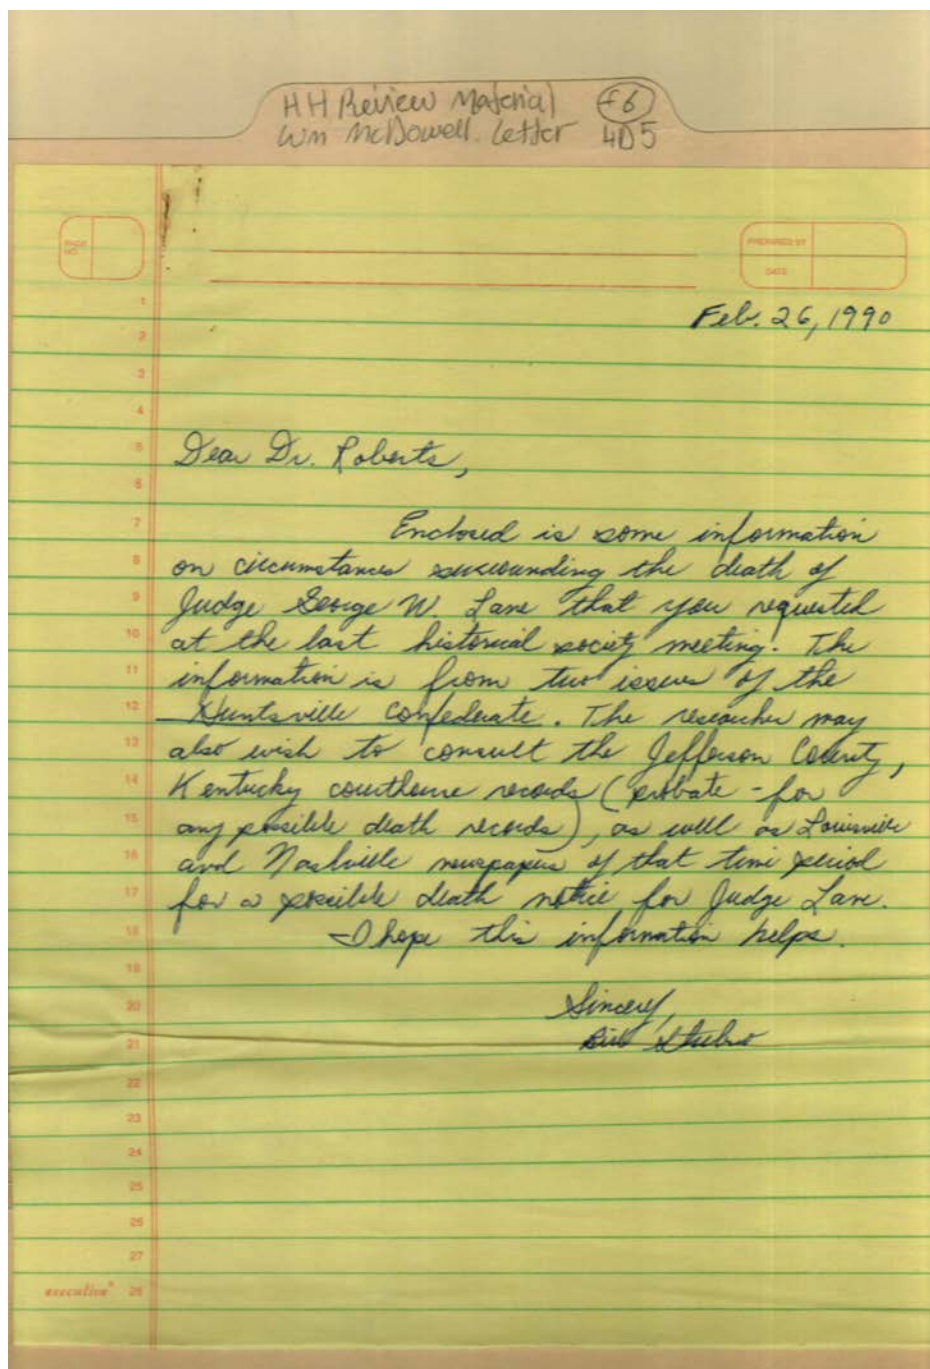 HH Review Material f6
Wm McDowell. Letter 4D5
PAGE NO.
PREPARED BY
DATE
1
Feb. 26, 1990
2
3
4
5 Dear Dr. Roberts,
6
7 Enclosed is some information
8 on circumstances surrounding the death of
9 Judge George W. Lane that you requested
10 at the last historical society meeting. The
11 information is from two issues of the
12 Huntsville Confederate. The researcher may
13 also wish to consult the Jefferson County,
14 Kentucky courthouse records (probate - for
15 any possible death records), as well as Louisville
16 and Nashville newspapers of that time period
17 for a possible death notice for Judge Lane.
18 I hope this information helps.
19
20 Sincerely,
21 Bill
22
23
24
25
26
27
executive® 28